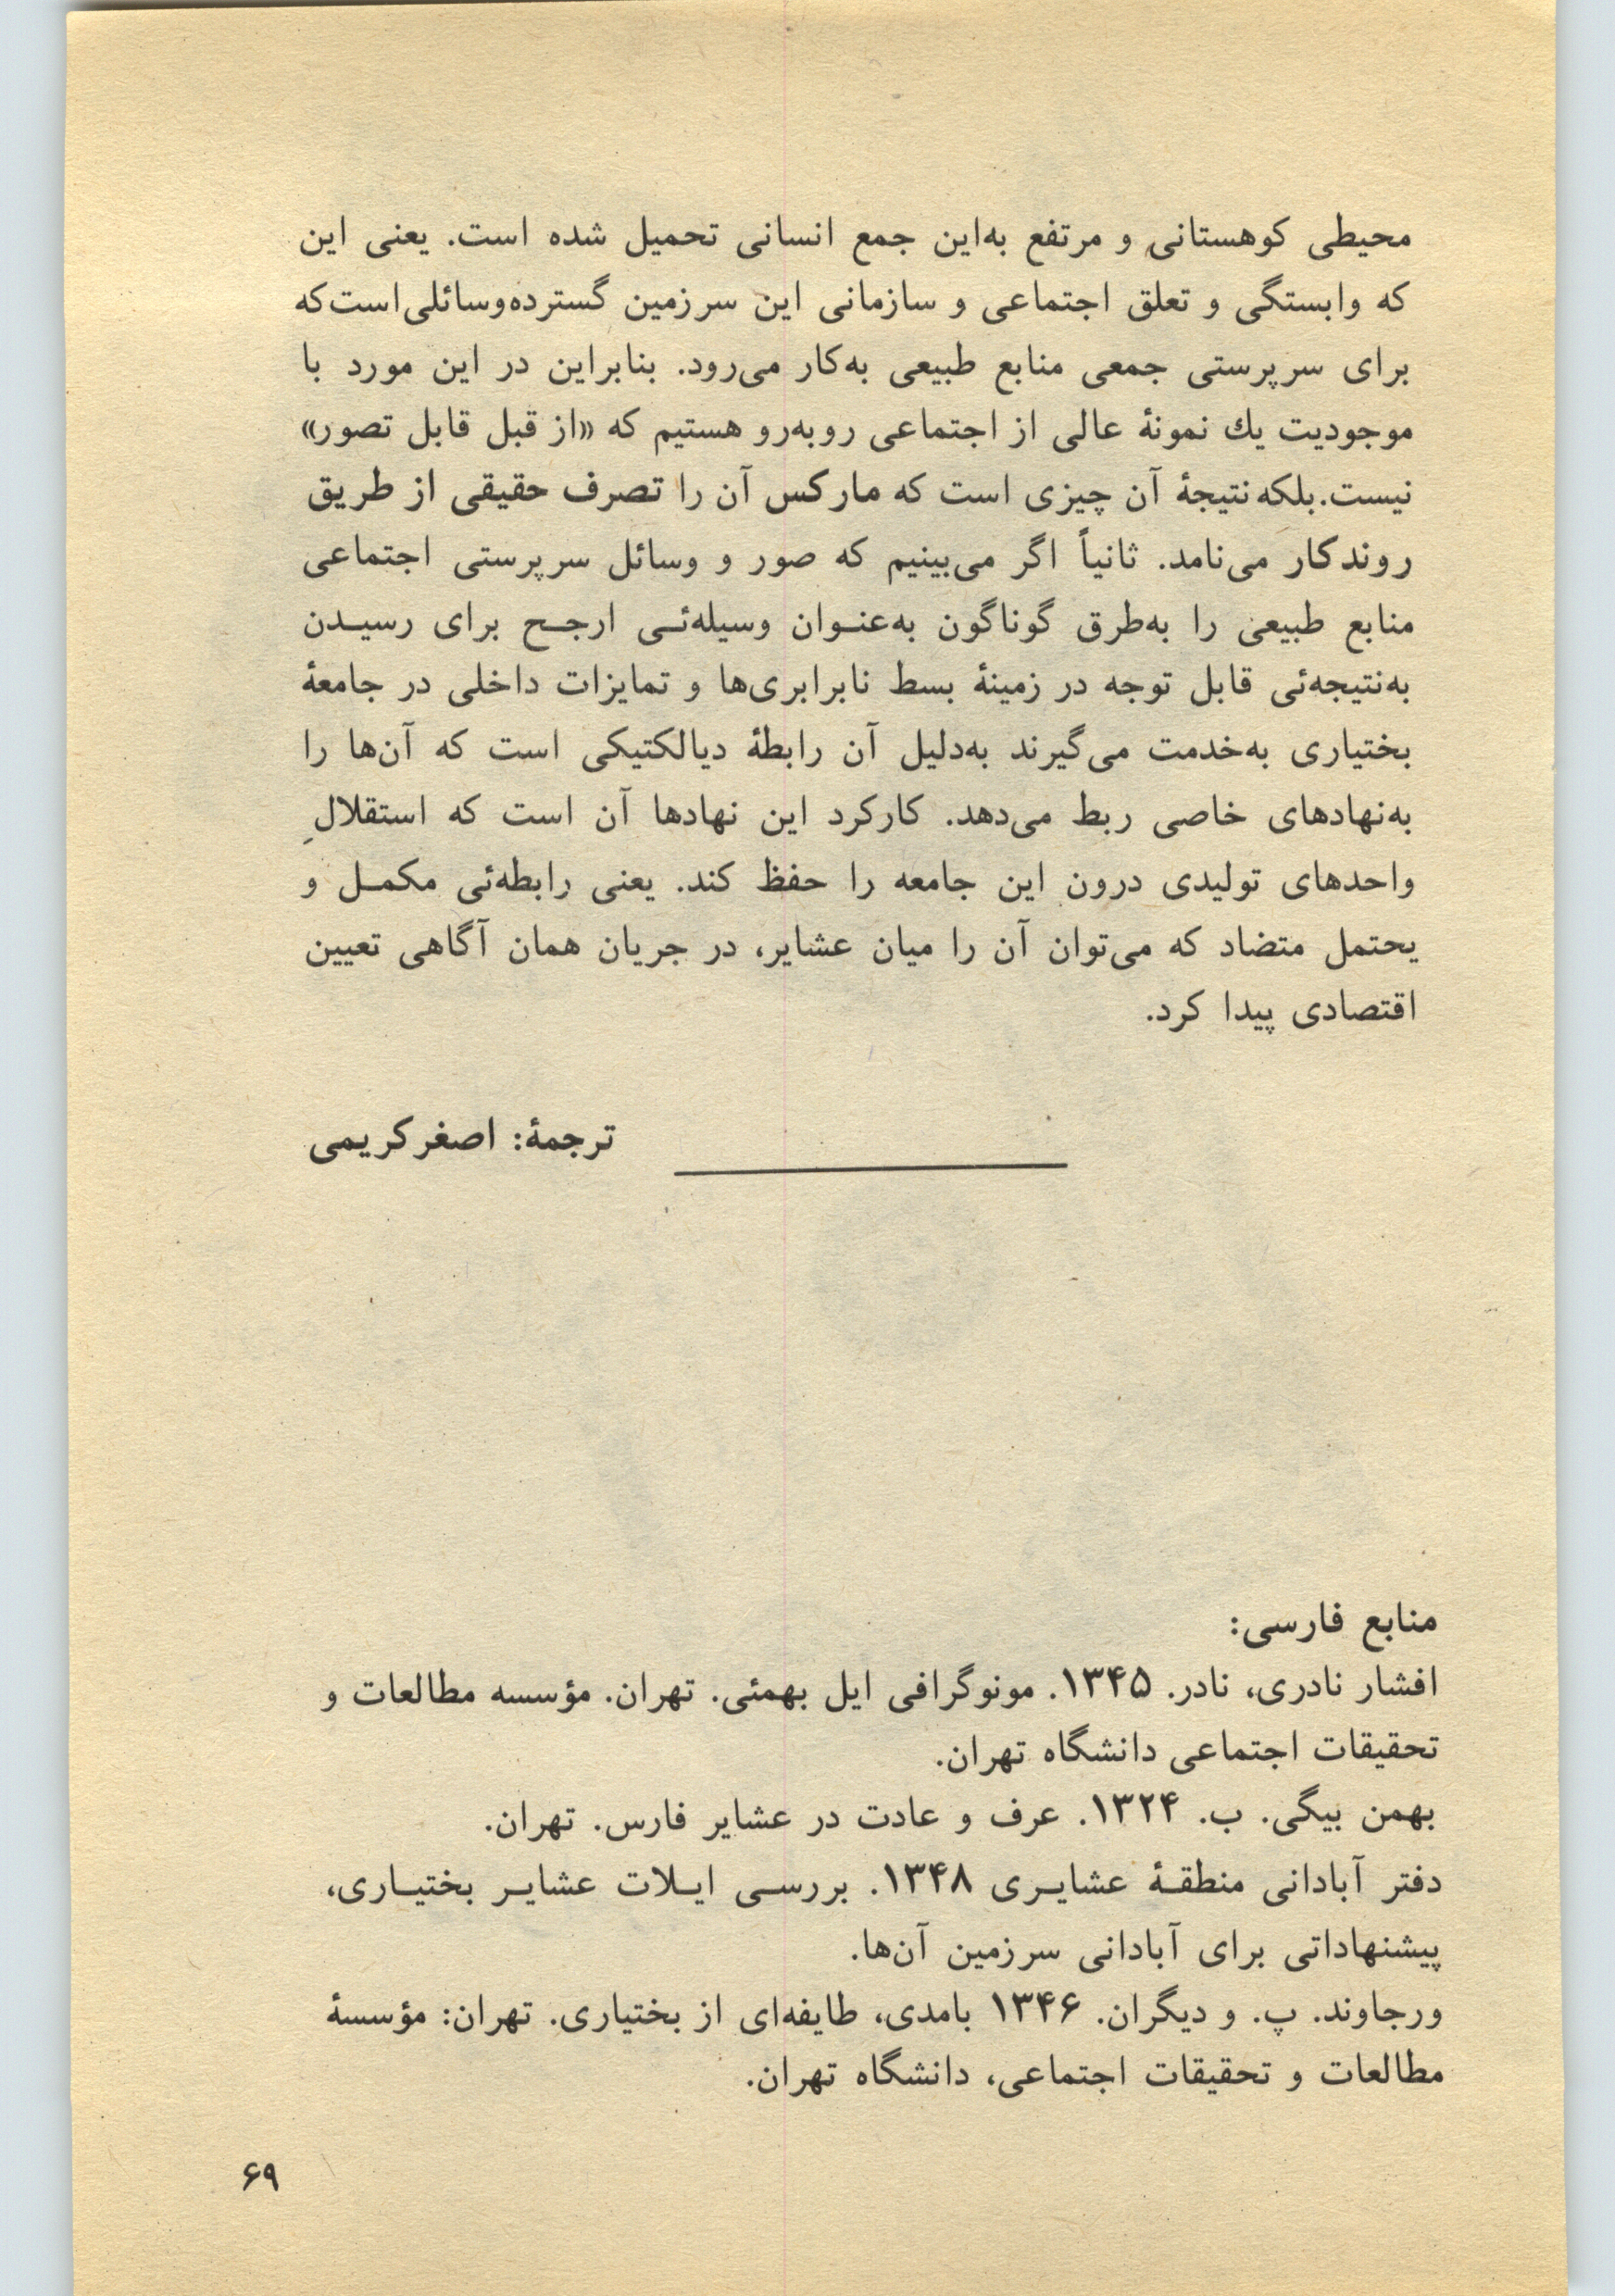 محیطی کوهستانی و مرتفع به‌این جمع انسانی تحمیل شده است. یعنی این
که وابستگی و تعلق اجتماعی و سازمانی این سرزمین گسترده‌وسائلی‌است‌که
برای سرپرستی جمعی منابع طبیعی به‌کار می‌رود. بنابراین در این مورد با
موجودیت یك نمونهٔ عالی از اجتماعی روبه‌رو هستیم که «از قبل قابل تصور»
نیست. بلکه نتیجهٔ آن چیزی است که مارکس آن را تصرف حقیقی از طریق
روندکار می‌نامد. ثانیاً اگر می‌بینیم که صور و وسائل سرپرستی اجتماعی
منابع طبیعی را به‌طرق گوناگون به‌عنـوان وسیله‌ئـی ارجـح برای رسیـدن
به‌نتیجه‌ئی قابل توجه در زمینهٔ بسط نابرابری‌ها و تمایزات داخلی در جامعهٔ
بختیاری به‌خدمت می‌گیرند به‌دلیل آن رابطهٔ دیالکتیکی است که آن‌ها را
به‌نهادهای خاصی ربط می‌دهد. کارکرد این نهادها آن است که استقلالِ
واحدهای تولیدی درون این جامعه را حفظ کند. یعنی رابطه‌ئی مکمـل و
یحتمل متضاد که می‌توان آن را میان عشایر، در جریان همان آگاهی تعیین
اقتصادی پیدا کرد.
ترجمهٔ: اصغرکریمی
منابع فارسی:
افشار نادری، نادر. ۱۳۴۵. مونوگرافی ایل بهمئی. تهران. مؤسسه مطالعات و
تحقیقات اجتماعی دانشگاه تهران.
بهمن بیگی. ب. ۱۳۲۴. عرف و عادت در عشایر فارس. تهران.
دفتر آبادانی منطقـهٔ عشایـری ۱۳۴۸. بررسـی ایـلات عشایـر بختیـاری،
پیشنهاداتی برای آبادانی سرزمین آن‌ها.
ورجاوند. پ. و دیگران. ۱۳۴۶ بامدی، طایفه‌ای از بختیاری. تهران: مؤسسهٔ
مطالعات و تحقیقات اجتماعی، دانشگاه تهران.
۶۹